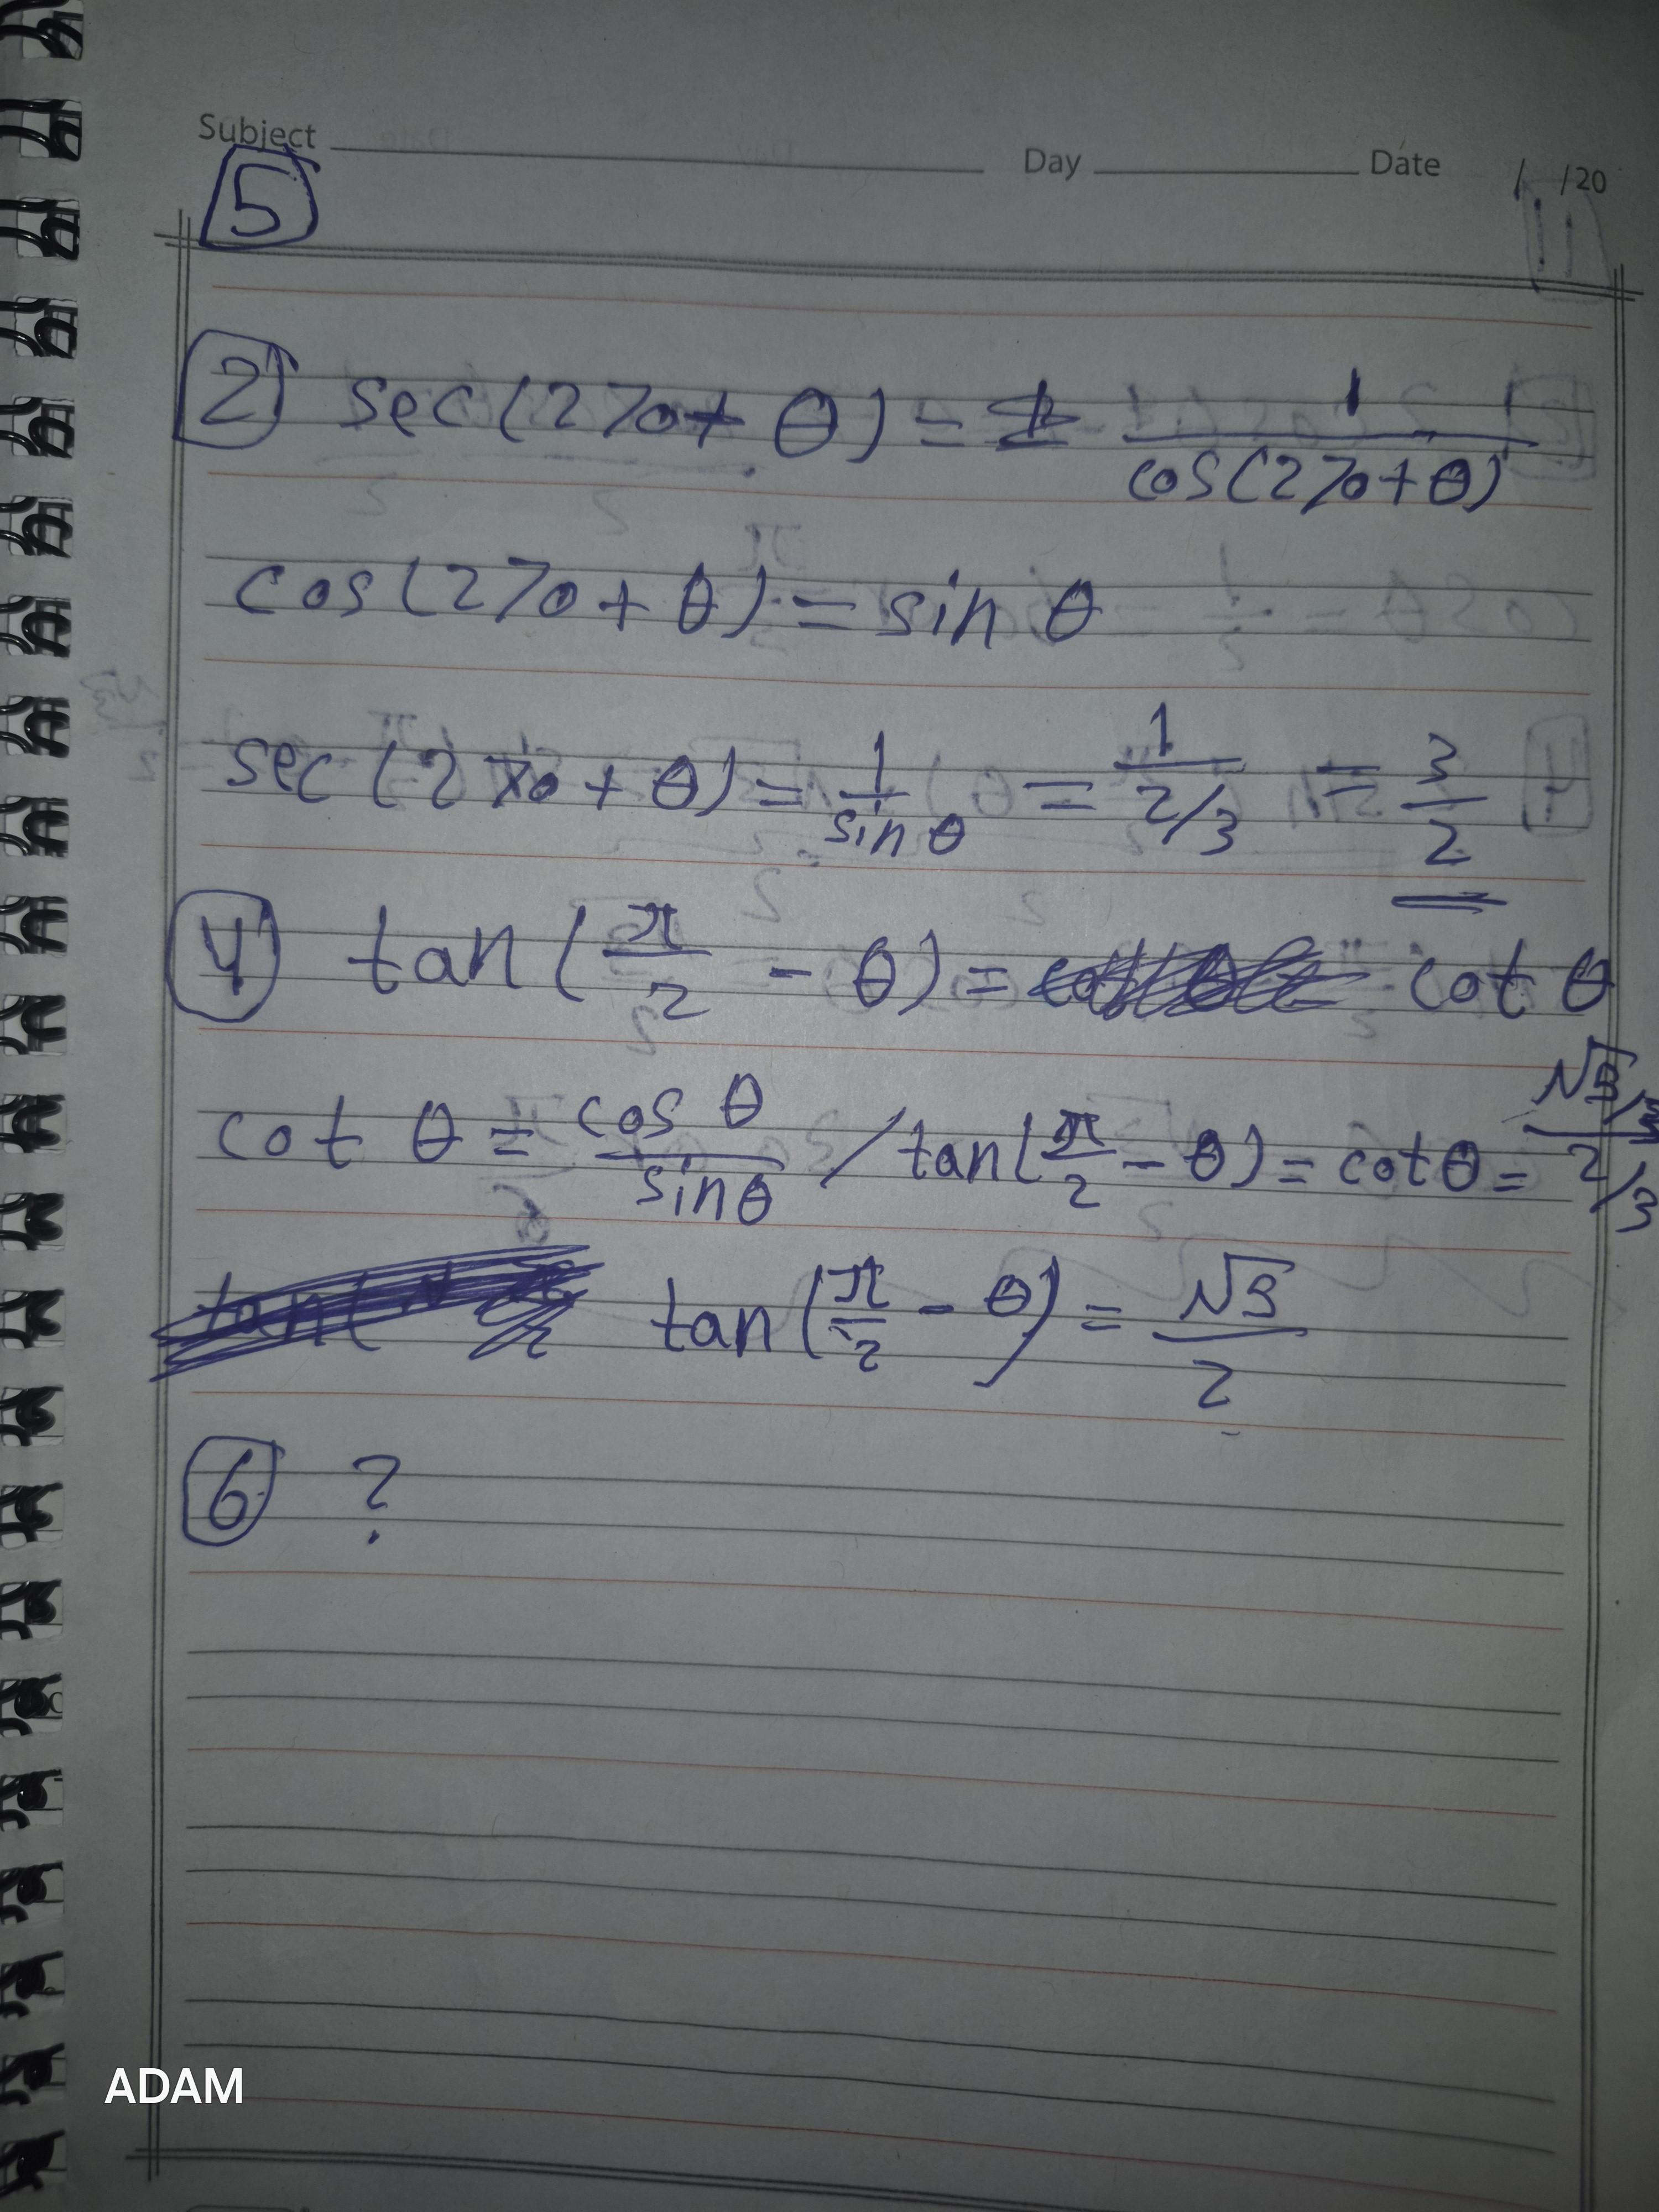 Subject Day Date / /20
5
2 sec(270+θ) = 1/cos(270+θ)
cos(270+θ) = sin θ
sec(270+θ) = 1/sin θ = 1/(2/3) = 3/2
4 tan(π/2 - θ) = cot θ
cot θ = cos θ/sin θ / tan(π/2 - θ) = cot θ = (√5/3)/(2/3)
tan(π/2 - θ) = √5/2
6 ?
ADAM